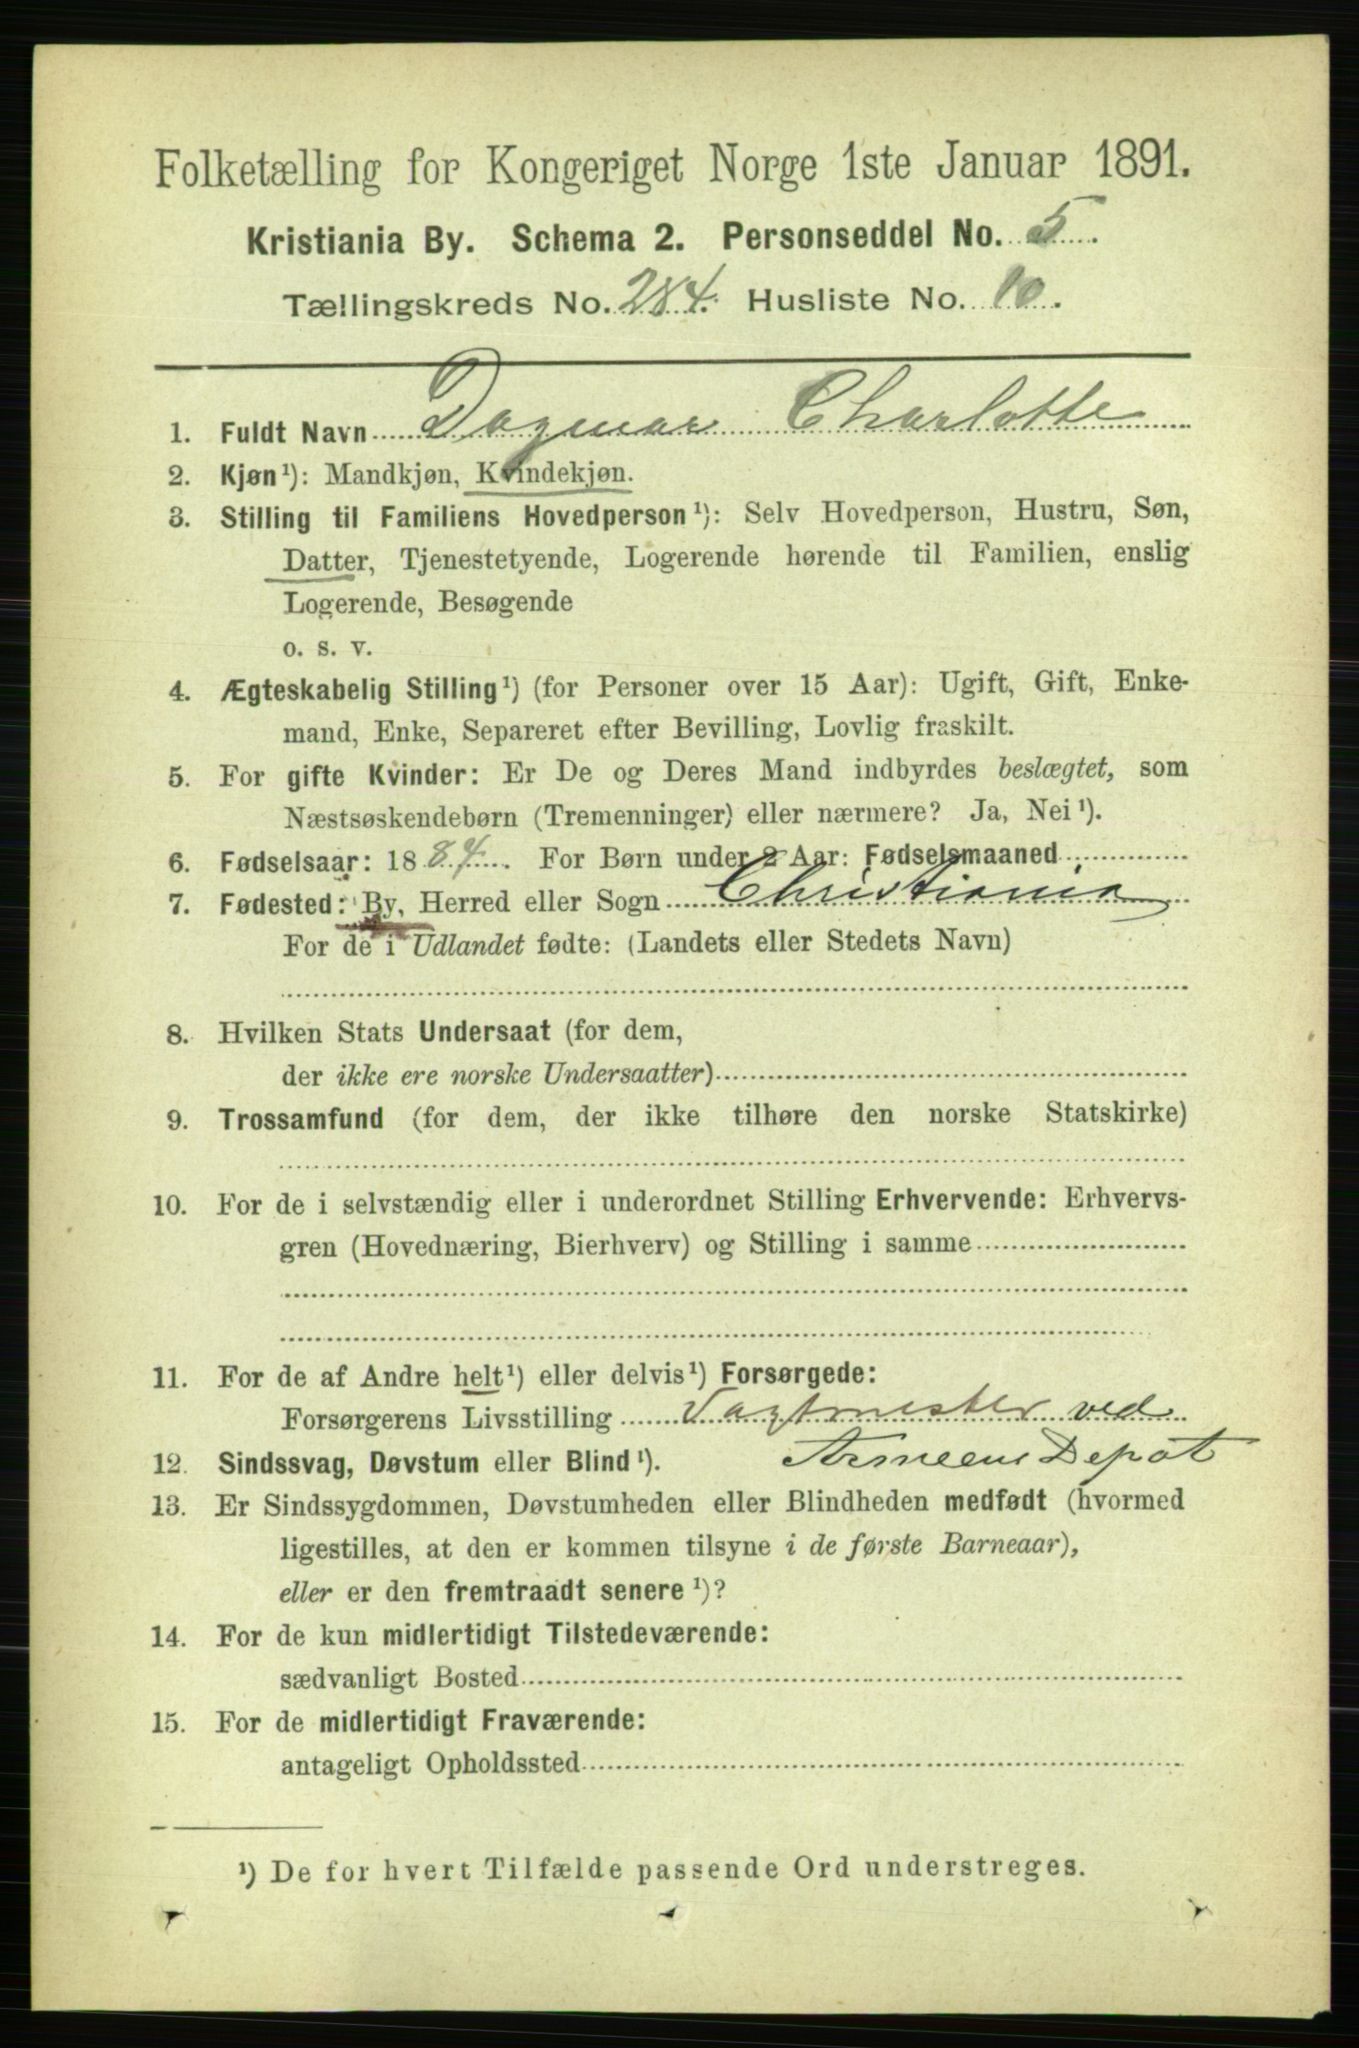 Folketælling for Kongeriget Norge 1ste Januar 1891.
Kristiania By. Schema 2. Personseddel No. 5.
Tællingskreds No. 284. Husliste No. 10.
1. Fuldt Navn Dagmar Charlotte
2. Kjøn¹): Mandkjøn, Kvindekjøn.
3. Stilling til Familiens Hovedperson¹): Selv Hovedperson, Hustru, Søn,
Datter, Tjenestetyende, Logerende hørende til Familien, enslig
Logerende, Besøgende
o. s. v.
4. Ægteskabelig Stilling¹) (for Personer over 15 Aar): Ugift, Gift, Enke-
mand, Enke, Separeret efter Bevilling, Lovlig fraskilt.
5. For gifte Kvinder: Er De og Deres Mand indbyrdes beslægtet, som
Næstsøskendebørn (Tremenninger) eller nærmere? Ja, Nei¹).
6. Fødselsaar: 1884. For Børn under 2 Aar: Fødselsmaaned
7. Fødested: By, Herred eller Sogn Christiania
For de i Udlandet fødte: (Landets eller Stedets Navn)
8. Hvilken Stats Undersaat (for dem,
der ikke ere norske Undersaatter)
9. Trossamfund (for dem, der ikke tilhøre den norske Statskirke)
10. For de i selvstændig eller i underordnet Stilling Erhvervende: Erhvervs-
gren (Hovednæring, Bierhverv) og Stilling i samme
11. For de af Andre helt¹) eller delvis¹) Forsørgede:
Forsørgerens Livsstilling Vagtmester ved
12. Sindssvag, Døvstum eller Blind¹). Armeens Depot
13. Er Sindssygdommen, Døvstumheden eller Blindheden medfødt (hvormed
ligestilles, at den er kommen tilsyne i de første Barneaar),
eller er den fremtraadt senere¹)?
14. For de kun midlertidigt Tilstedeværende:
sædvanligt Bosted
15. For de midlertidigt Fraværende:
antageligt Opholdssted
¹) De for hvert Tilfælde passende Ord understreges.